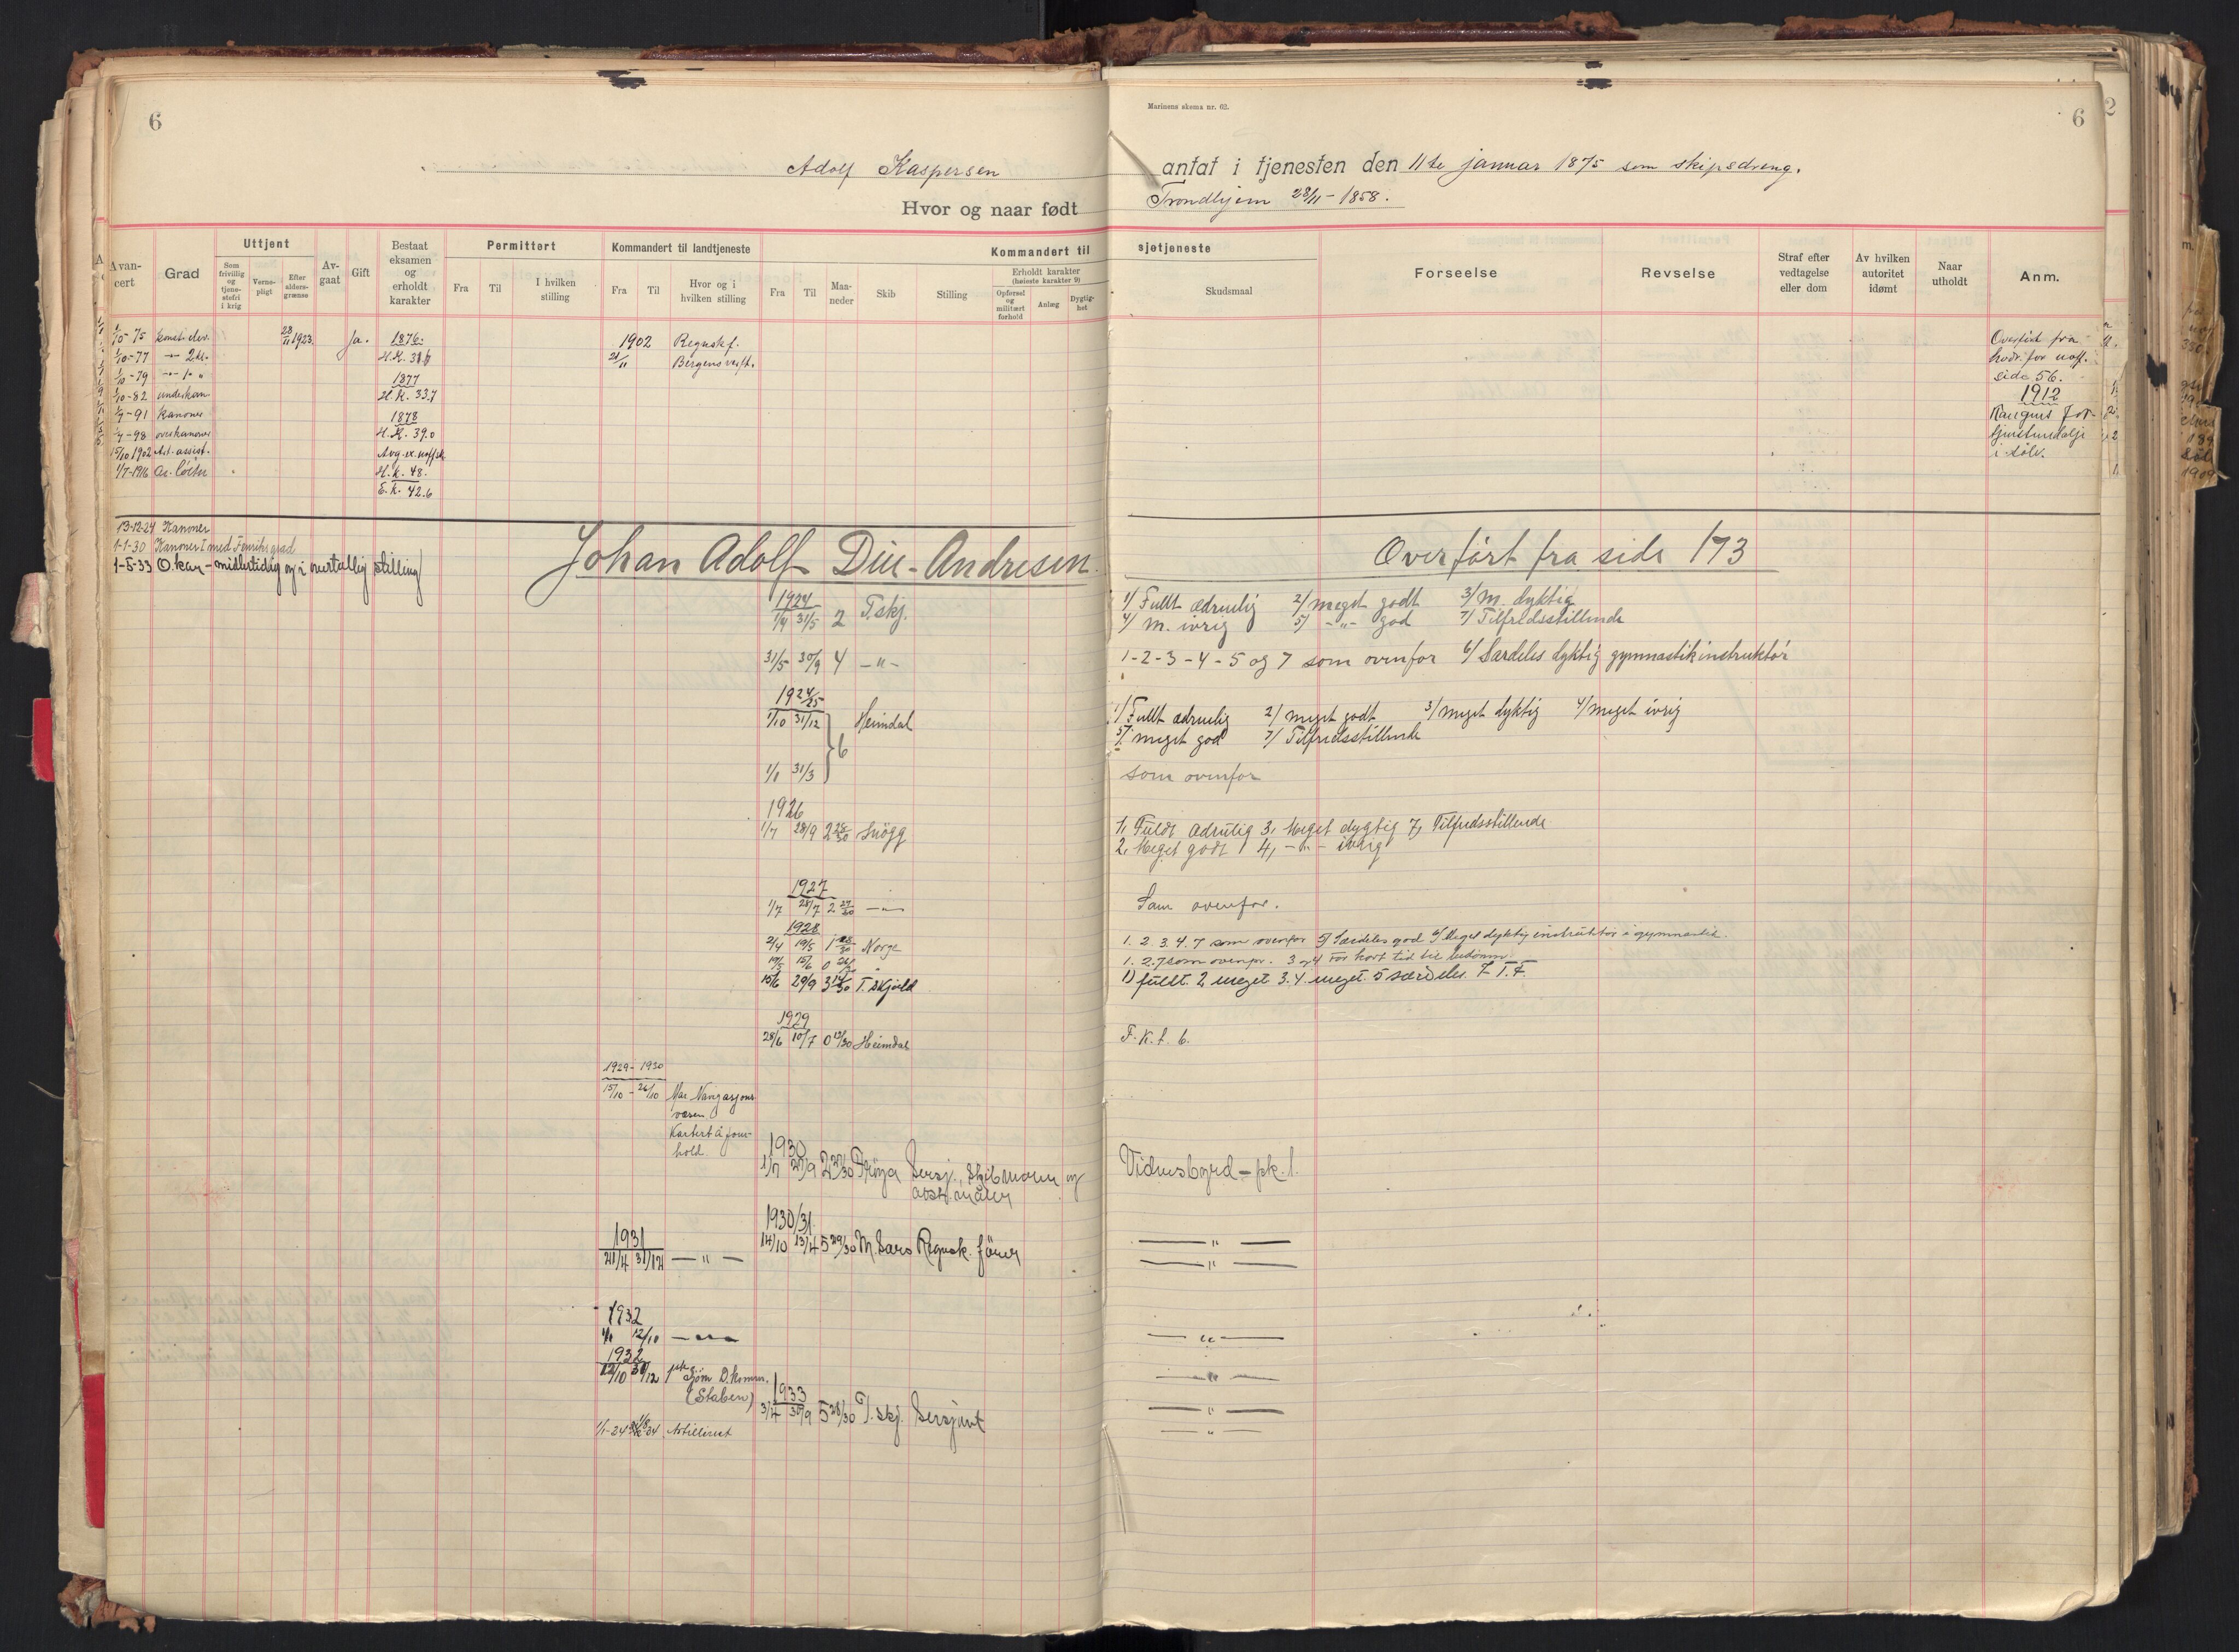 6
Marinens skema nr. 62.
6
Adolf Kaspersen
antat i tjenesten den 11te januar 1875 som skipsdreng.
Hvor og naar født
Trondhjem 28/11 - 1858.
Avancert
Grad
Uttjent
Som frivillig og tjenestefri i krig
Vernepligt
Efter aldersgrænse
Avgaat
Gift
Bestaat eksamen og erholdt karakter
Permittert
Fra
Til
I hvilken stilling
Kommandert til landtjeneste
Fra
Til
Hvor og i hvilken stilling
Kommandert til
sjøtjeneste
Fra
Til
Maaneder
Skib
Stilling
Erholdt karakter
(høieste karakter 9)
Opførsel og militært forhold
Anlæg
Dygtighet
Skudsmaal
Forseelse
Revselse
Straf efter vedtagelse eller dom
Av hvilken autoritet idømt
Naar utholdt
Anm.
1/10-75 konst. elev.
1/10-77 -"- 2 kl.
1/10-79 -"- 1. "
1/10-82 underkan
1/7-91 kanoner
1/7-98 overkanoner
15/10 1902 Art. assist.
1/7-1916
28/11 1923.
Ja.
1876.
H.K.
1877
H.K. 33.7
1878
H.K. 39.0
H.K. 48.
E.K. 42.6
1902
21/11
Regnskf.
Bergens
Overført fra
hovdr. for uoff.
side 56.
1912
Kongens for-
tjenstmedalje
i sølv.
13-12-24 Kanoner
1-1-30 Kanoner I med Fenriks grad
1-5-33 O.kan - midlertidig og i overtallig stilling
Johan Adolf Due-Andresen.
Overført fra side 173
1924
1/4 31/5 2 T.skj.
1/ Fullt ædruelig 2/ meget godt 3/ M. dyktig
4/ M. ivrig 5/ -"- god 7/ Tilfredsstillende
31/5 30/9 4 -"-
1-2-3-4-5 og 7 som ovenfor 6/ Særdeles dyktig gymnastikinstruktør
1924/25
1/10 31/12 Heimdal
6
1/ Fullt ædruelig 2/ meget godt 3/ meget dyktig 4/ meget ivrig
5/ meget god 7/ Tilfredsstillende
1/1 31/3
som ovenfor
1926
1/7 28/9 2 28/30 Snögg
1, Fuldt ædrulig 3, Meget dygtig 7, Tilfredsstillende
2, Meget godt 4, -"- ivrig
1927
1/7 28/7 2 27/30 -"-
Som ovenfor.
1928
2/4 19/5 1 18/30 Norge
1. 2. 3. 4. 7 som ovenfor 5/ Særdeles god 6/ Meget dyktig instruktør i gymnastik.
19/5 15/6 0 "
1. 2. 7 som ovenfor. 3 og 4 For kort tid til bedöm.
15/6 29/9 3 14/30 T. Skjold
1) fuldt. 2 meget 3. 4. meget. 5 særdeles. 7 T. F.
1929
28/6 10/7 0 13/30 Heimdal
F. K. t. b.
1929 - 1930
15/10 - 26/10 Mar. Navigasjons
vesen
Kartert å jour-
hold
1930
1/7 27/9 2 27/30 Frøya Sersj., Skibmoner og
avst.måler
Vidnesbyrd - pk. 1.
1930/31
14/10 13/4 5 29/30 M. Sars Regnsk. förer
— " —
1931
21/4 31/12 — " —
— " —
1932
1/1 12/10 — " —
— " —
1932
12/10 31/12 1ste Sjöm. D. Komm.
(Staben)
— " —
1933
3/4 30/9 5 28/30 T. skj. Sersjant
— " —
Artilleriet
— " —